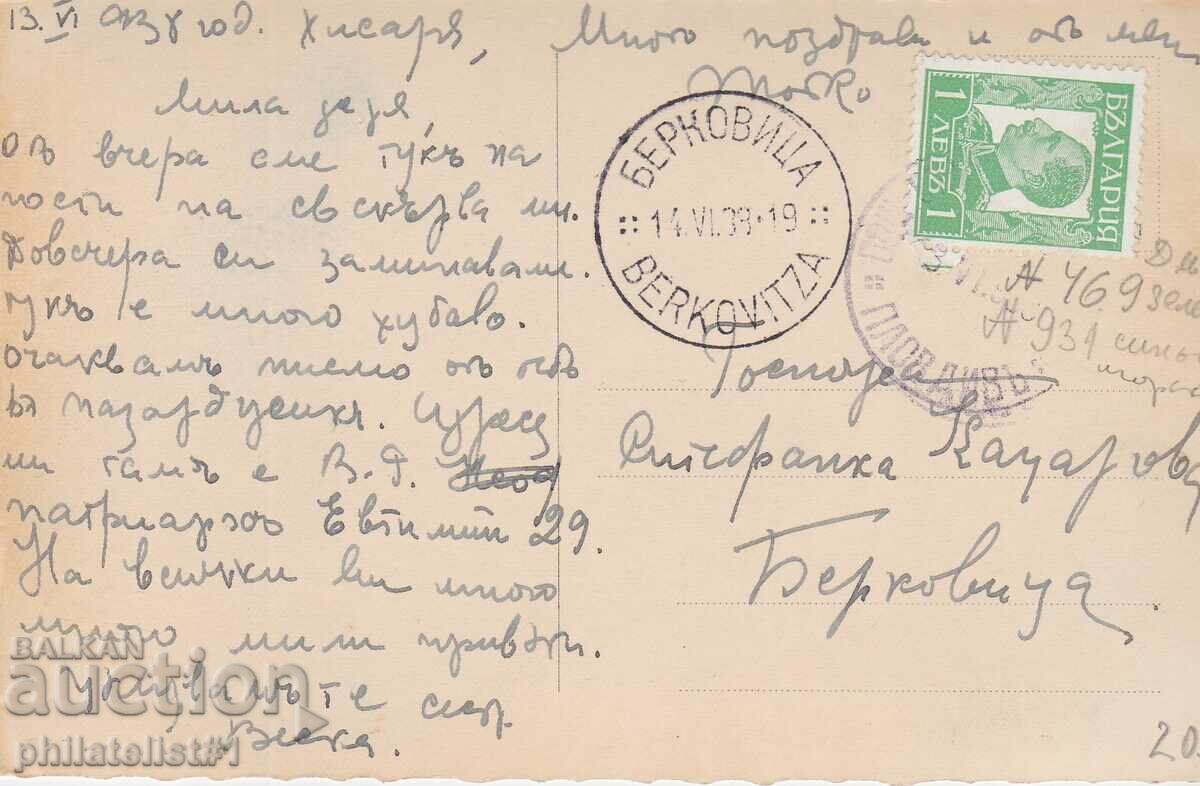 13. VI 938 год. Хисаря,
Мила
отъ вчера сме тукъ на
гости на свекърва ми.
Довечера си заминаваме.
тукъ е много хубаво.
очаквамъ писмо отъ тебъ
въ
ми тамъ е В. Д.
патриархъ Евтимий 29.
На всички ви много
много мили привети.
те сестр.
Веска.
Много поздрави и отъ мен
БЕРКОВИЦА
14.VI.38·19
BERKOVITZA
БЪЛГАРИЯ
1 ЛЕВЪ 1
ПЛОВДИВЪ
N 769 зел
N 931
Госпожа
Стефанка
Берковица
20
BALKAN
auction
philatelist#1